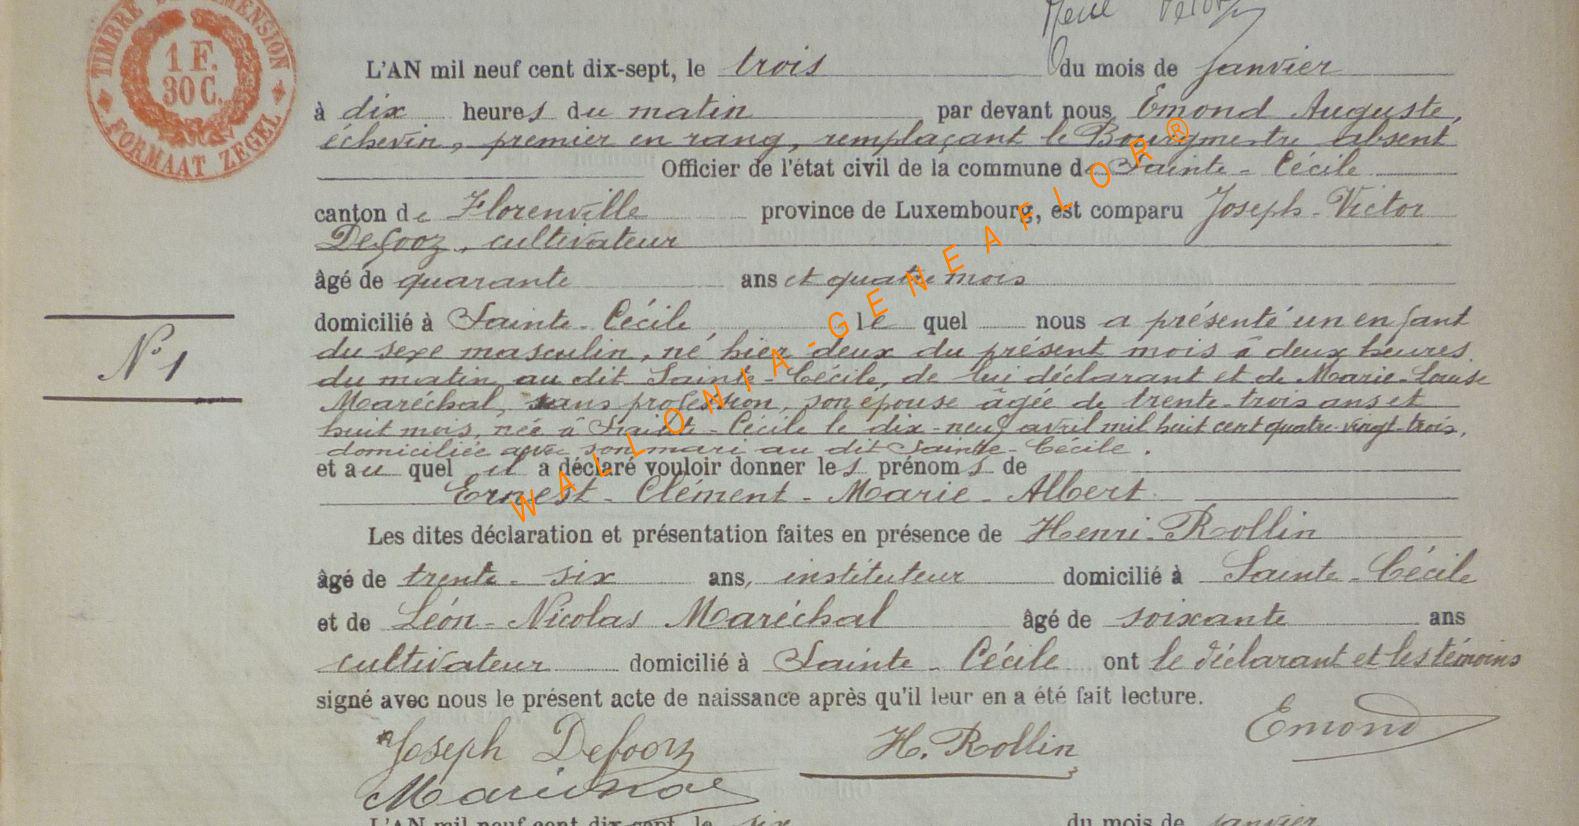 TIMBRE DIMENSION
1 F.
30 C.
FORMAAT ZEGEL
René
L'AN mil neuf cent dix-sept, le trois du mois de janvier
à dix heures du matin par devant nous Emond Auguste,
échevin, premier en rang, remplaçant le Bourgmestre absent
Officier de l'état civil de la commune de Sainte-Cécile
canton de Florenville province de Luxembourg, est comparu Joseph-Victor
Defooz, cultivateur
âgé de quarante ans et quatre mois
domicilié à Sainte-Cécile le quel nous a présenté un enfant
du sexe masculin, né hier deux du présent mois à deux heures
du matin au dit Sainte-Cécile, de lui déclarant et de Marie-Louise
Maréchal, sans profession, son épouse âgée de trente-trois ans et
huit mois, née à Sainte-Cécile le dix-neuf avril mil huit cent quatre-vingt-trois,
domiciliée avec son mari au dit Sainte-Cécile.
et au quel il a déclaré vouloir donner les prénoms de
Ernest-Clément-Marie-Albert
Les dites déclaration et présentation faites en présence de Henri-Rollin
âgé de trente-six ans, instituteur domicilié à Sainte-Cécile
et de Léon-Nicolas Maréchal âgé de soixante ans
cultivateur domicilié à Sainte-Cécile ont le déclarant et les témoins
signé avec nous le présent acte de naissance après qu'il leur en a été fait lecture.
N° 1
Joseph Defooz H. Rollin Emond
Maréchal
L'AN mil neuf cent dix-sept, le six du mois de janvier
WALLONIA-GENEAFLOR®